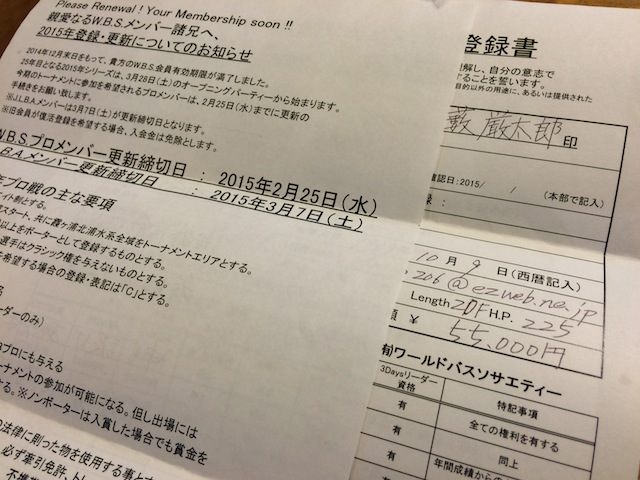 Please Renewal ! Your Membership soon !!
親愛なるW.B.S.メンバー諸兄へ、
2015年登録・更新についてのお知らせ
2014年12月末日をもって、貴方のW.B.S.会員有効期限が満了しました。
25年目となる2015年シリーズは、3月28日(土)のオープニングパーティーから始まります。
今期のトーナメントに参加を希望されるプロメンバーは、2月25日(水)までに更新の
手続きをお願い致します。
※J.L.B.Aメンバーは3月7日(土)が更新締切日となります。
※旧会員が復活登録を希望する場合、入会金は免除とします。
W.B.S.プロメンバー更新締切日 : 2015年2月25日(水)
B.A.メンバー更新締切日 : 2015年3月7日(土)
プロ戦の主な要項
エイト制とする。
スタート、共に霞ヶ浦北浦水系全域をトーナメントエリアとする。
以上をボーターとして登録するものとする。
選手はクラシック権を与えないものとする。
を希望する場合の登録・表記は「C」とする。
る
ーダーのみ)
プロにも与える
ーナメントの参加が可能になる。但し出場には
する。※ノンボーターは入賞した場合でも賞金を
の法律に則った物を使用する事と
必ず牽引免許、ト
登録書
解し、自分の意志で
することを誓います。
目的以外の用途に、あるいは提供された
藪 厳太郎 印
確認日:2015/ / (本部で記入)
録 :
10 月 9 日 (西暦記入)
206@ezweb.ne.jp
Length 20F H.P. 225
額 ¥ 55,000円
(有)ワールドバスソサエティー
3Daysリーダー資格 特記事項
有 全ての権利を有する
有 同上
有 年間成績からの
有